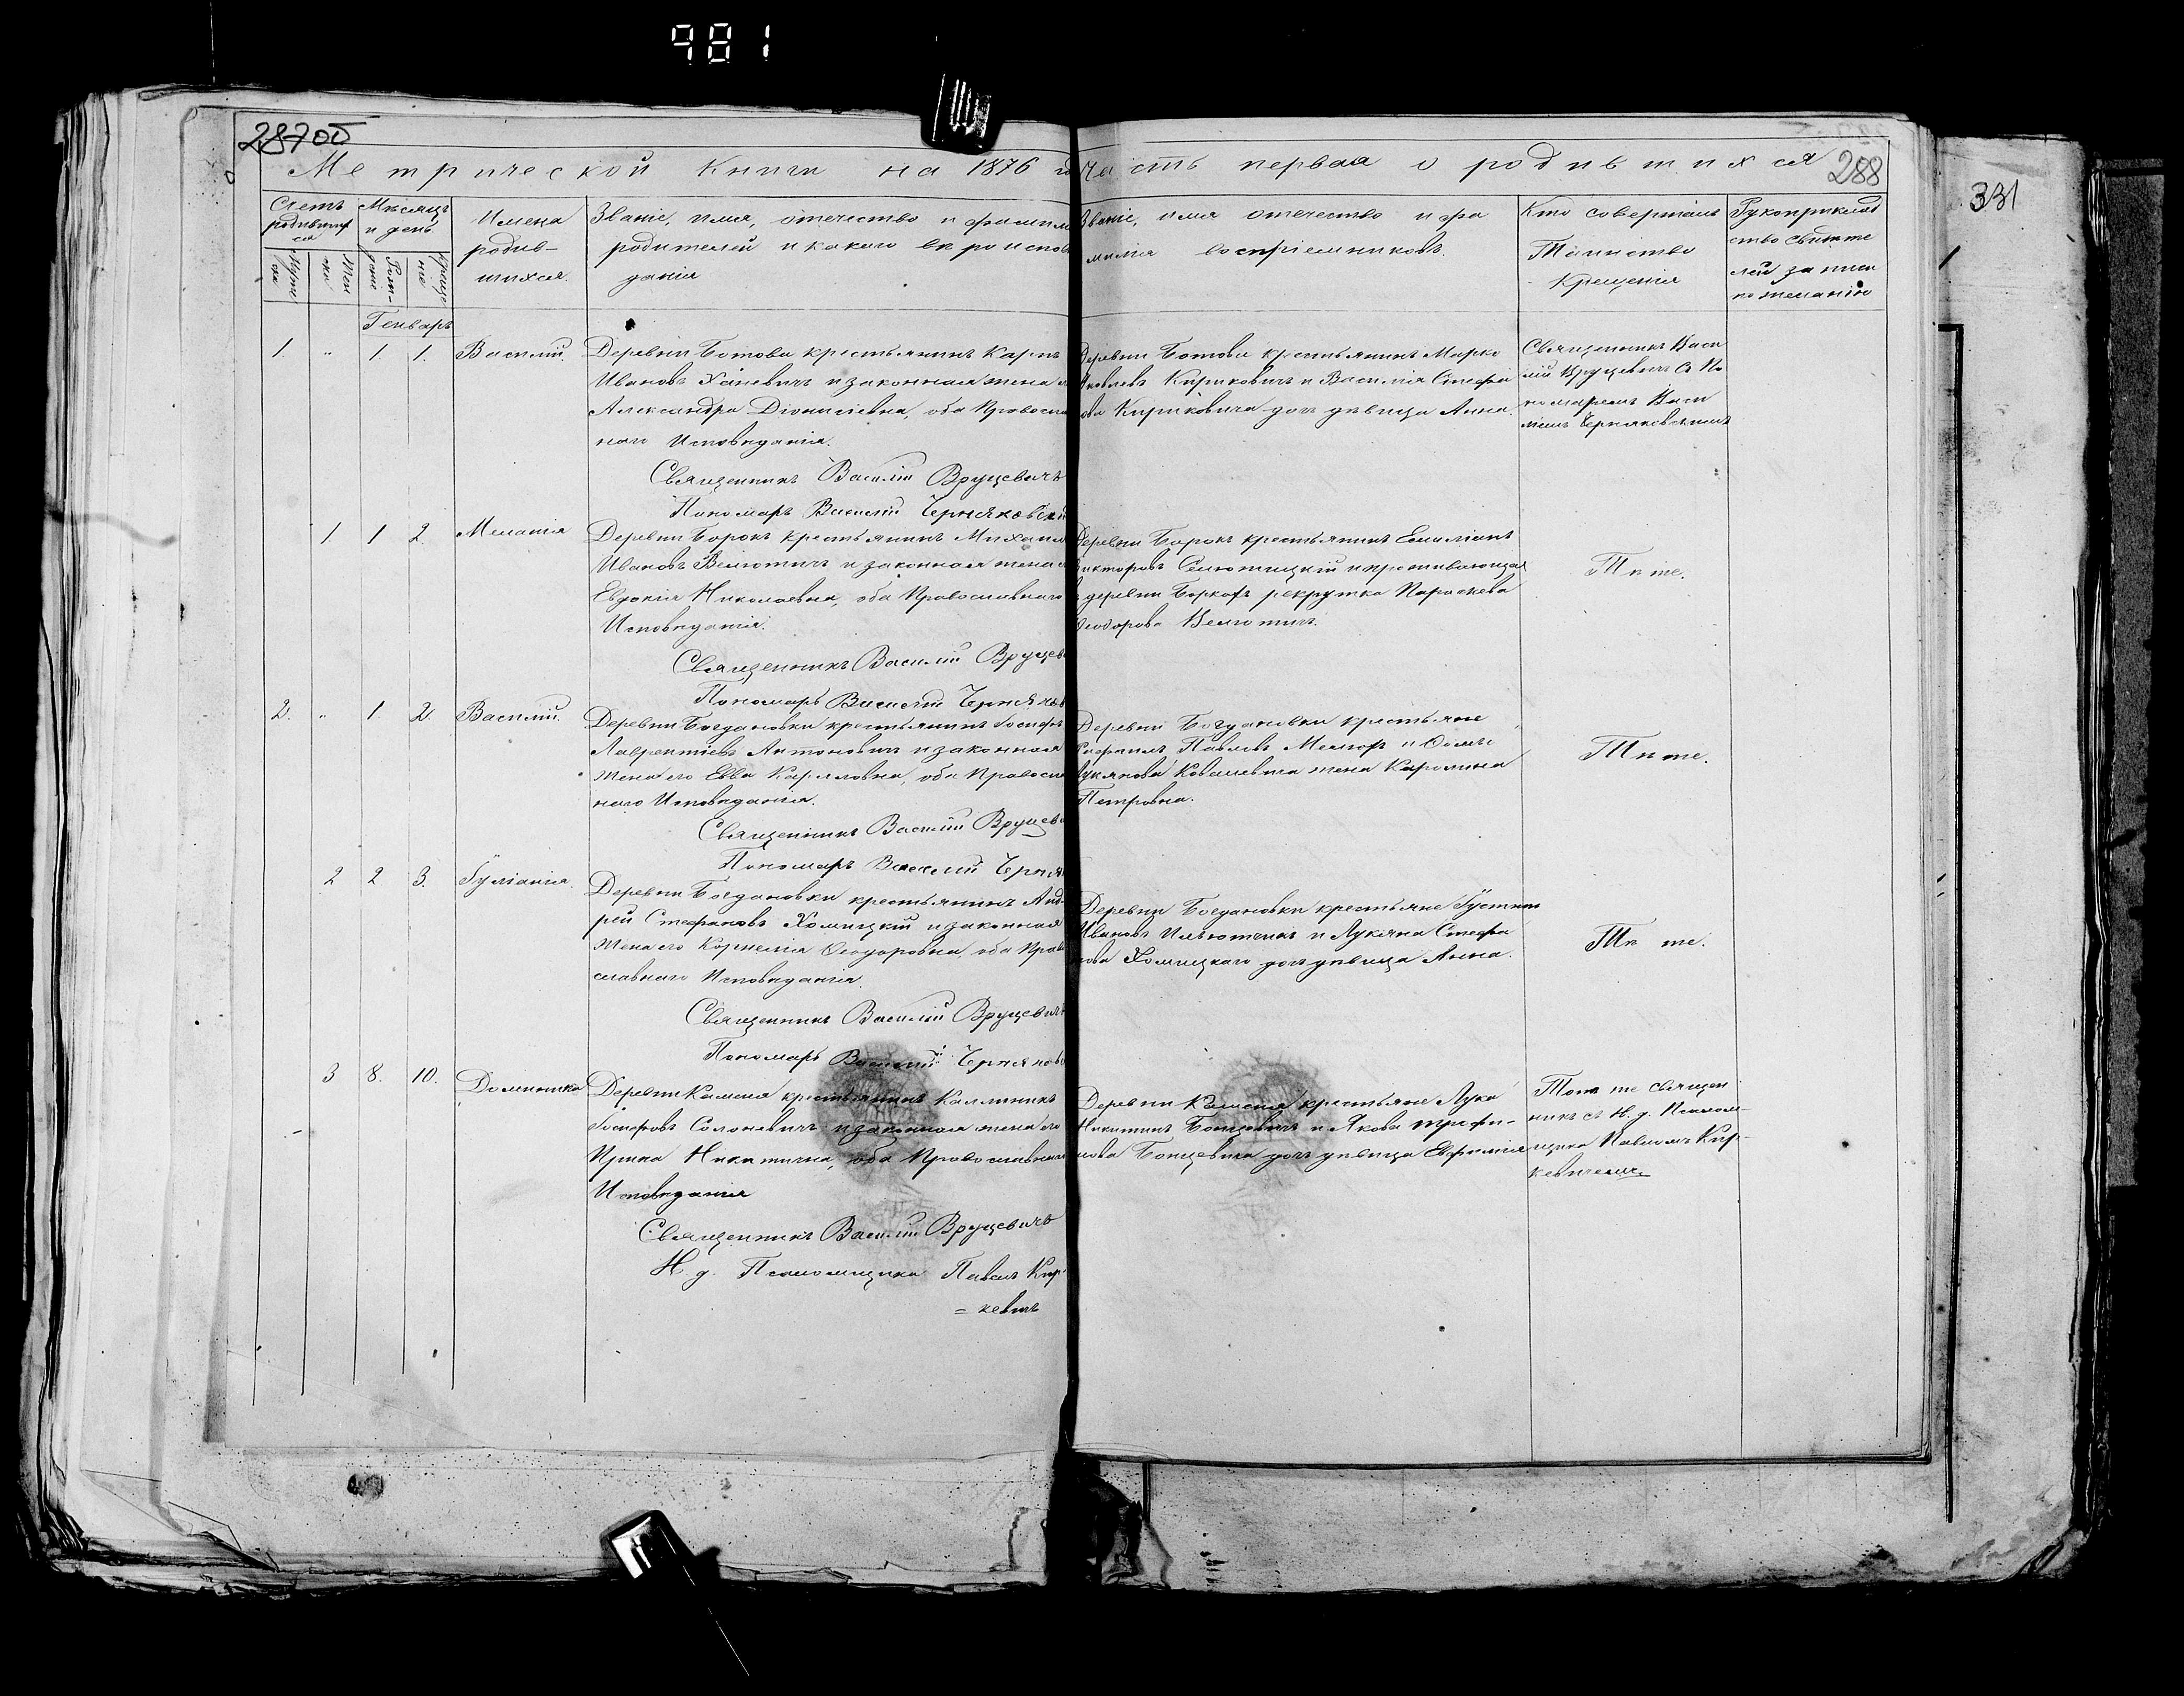 981
287об
288
331
Метрической Книги на 1876 го
Часть первая о родившихся
Счетъ родившихся
Мѣсяцъ и день
Имена родившихся.
Званіе, имя, отечество и фамилі
родителей и какого вѣроиспов
данія
Званіе, имя отечество и фа
милія воспріемниковъ.
Кто совершалъ
Таинство
Крещенія
Рукоприклад
ство свидѣте
лей записи
по желанію
Генварь
1. " 1. 1. Василій.
Деревни Ботова крестьянинъ Карпъ
Ивановъ Ханевичъ и законная жена
Александра Діонисіевна, оба Правосла
наго Исповѣданія.
Священникъ Василій Вруцевичъ
Пономарь Василій Черняковскі
Деревни Ботова крестьянинъ Марко
Яковлевъ Кириковичъ и Василія Стефа
ова Кириковича дочь дѣвица Анна.
Священникъ Васи
лій Вруцевичъ съ По
номаремъ Васи
ліемъ Черняковскимъ
1 1 2. Меланія
Деревни Борокъ крестьянинъ Михаил
Ивановъ Велютичъ и законная жена
Евдокія Николаевна, оба Православнаго
Исповѣданія.
Священникъ Василій Вруцев
Пономарь Василій Черняков
Деревни Борокъ крестьянинъ Емиліанъ
икторовъ Селютицкій и проживающая
деревни Боркахъ рекрутка Параскева
Ѳеодорова Велютичъ.
Тѣ же.
2. " 1. 2. Василій.
Деревни Богдановки крестьянинъ Іосифъ
Лаврентіевъ Антоновичъ и законная
жена его Евва Карловна, оба Правосла
наго Исповѣданія.
Священникъ Василій Вруцев
Пономарь Василій Черня
Деревни Богдановки крестьяне
Рафаилъ Павловъ и Ѳомы
Ковалевича жена Каролина
Петровна.
Тѣ же.
2 2 3. Іуліанія.
Деревни Богдановки крестьянинъ Анд
рей Стефановъ Хомицкій и законная
жена его Корнелія Ѳеодоровна, оба Прав
славнаго Исповѣданія.
Священникъ Василій Вруцевичъ
Пономарь Василій Черняков
Деревни Богдановки крестьяне Іустинъ
Ивановъ и Лукяна Стефа
нова Хомицкаго дочь дѣвица Анна.
Тѣ же.
3 8. 10. Домникія
Деревни Каменя крестьянинъ Каллиникъ
Іосифовъ Солоневичъ и законная жена его
Ирина Никитична, оба Православнаго
Исповѣданія
Священникъ Василій Вруцевичъ
И. д. Псаломщика Павелъ Кир
= кевичъ
Деревни Каменя крестьяне Лука
Никитинъ Бонцевичъ и Якова Трофи-
мова Бонцевича дочь дѣвица Евфимія
Тотъ же священ
никъ съ И. д. Псалом-
щика Павломъ Кир-
кевичемъ.